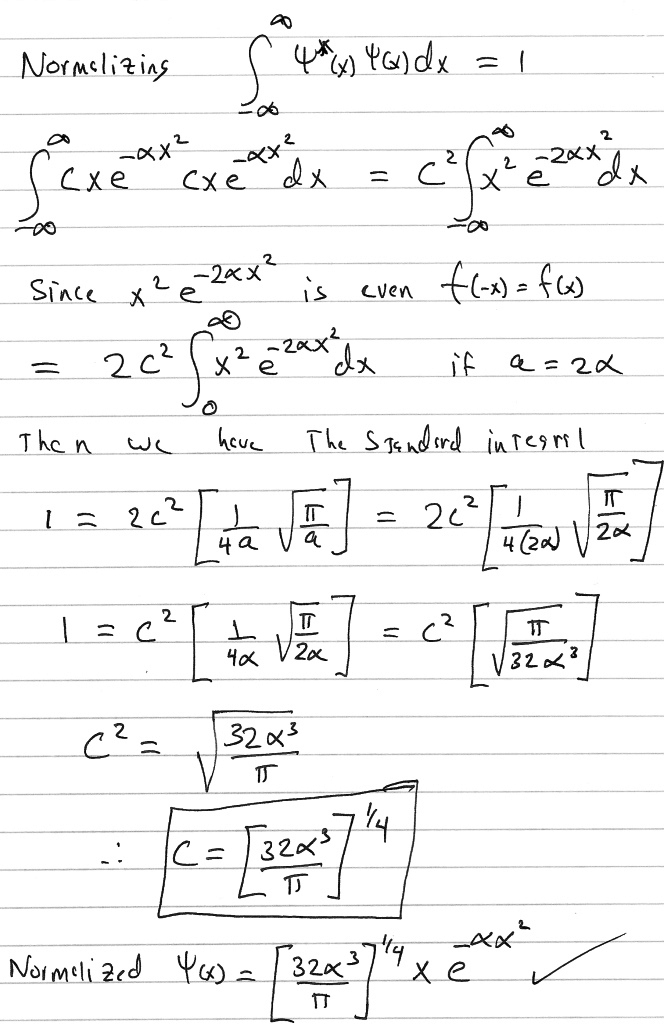 Normalizing ∫_{-∞}^{∞} Ψ*(x) Ψ(x) dx = 1
∫_{-∞}^{∞} cxe^{-αx²} cxe^{-αx²} dx = c² ∫_{-∞}^{∞} x² e^{-2αx²} dx
Since x² e^{-2αx²} is even f(-x) = f(x)
= 2c² ∫_{0}^{∞} x² e^{-2αx²} dx if a = 2α
Then we have The Standard integral
1 = 2c² [1/4a √(π/a)] = 2c² [1/4(2α) √(π/2α)]
1 = c² [1/4α √(π/2α)] = c² [√(π/32α³)]
C² = √(32α³/π)
∴ C = [32α³/π]^{1/4}
Normalized Ψ(x) = [32α³/π]^{1/4} x e^{-αx²} ✓